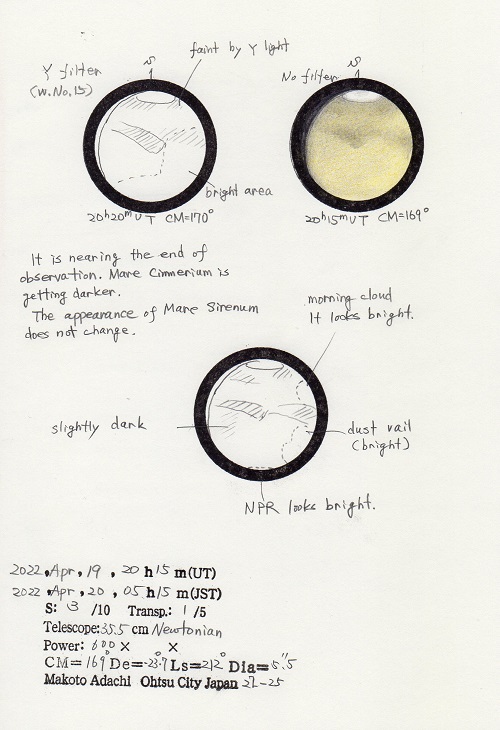 faint by Y light
Y filter
(W.No.15)
S
No filter
S
bright area
20h20mUT CM=170°
20h15mUT CM=169°
It is nearing the end of
observation. Mare Cimmerium is
getting darker.
The appearance of Mare Sirenum
does not change.
morning cloud
It looks bright.
slightly dark
dust vail
(bright)
NPR looks bright.
2022, Apr, 19, 20 h 15 m(UT)
2022, Apr, 20, 05 h 15 m(JST)
S: 3 /10 Transp.: 1 /5
Telescope: 35.5 cm Newtonian
Power: 600 × ×
CM=169° De=-23.7° Ls=212° Dia=5".5
Makoto Adachi Ohtsu City Japan